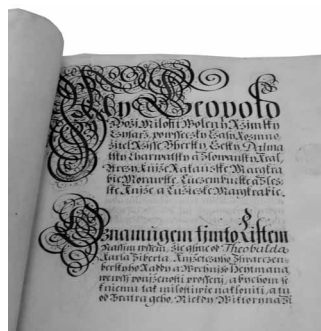 My Leopold
Boží Milostí Wolený Ržimský
Cýsarž, powssecky Cžasy Rozmno
žitel Ržísse Vherský, Cžeský, Dalma
tský Charwatský a Slowanský Král,
Arcy Kníže Rakauské Margkra
bie Morawské, Lucemburské a Sles
ské Kníže a Lužické Margkrabie.
Oznamugem tímto Listem
Přassým wssem, že gsme od Theobalda
Karla Žiberta Knížetcýho
berského Raddy a Heytmana,
we wssý poníženosti prosseni, abychom k
kniemu tak milostiwie naklonili, a tu
od Bratra geho, Někdy Wittoryna Ži